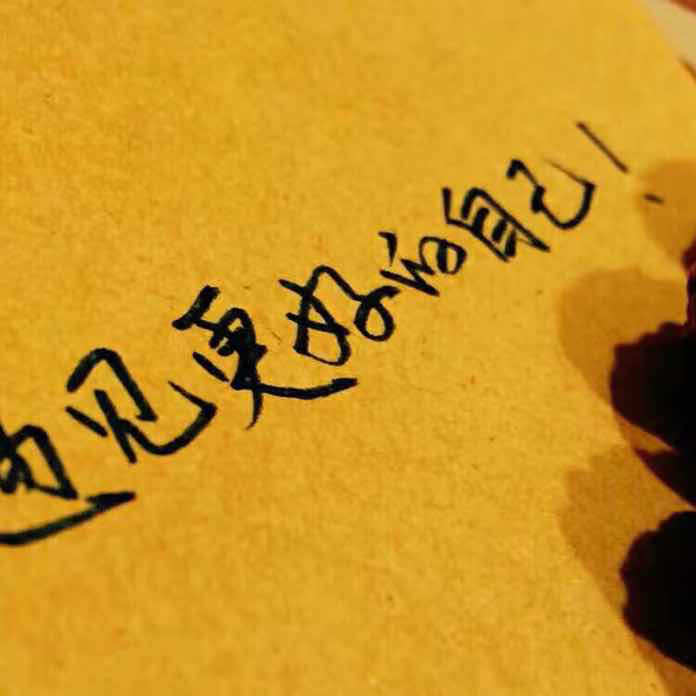 遇见更好的自己!